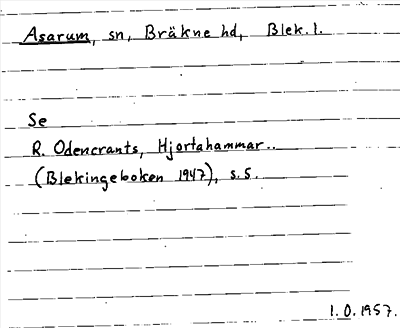 Asarum, sn, Bräkne hd, Blek. l.
Se
R. Odencrants, Hjortahammar..
(Blekingeboken 1947), s. 5.
1.0.1957.